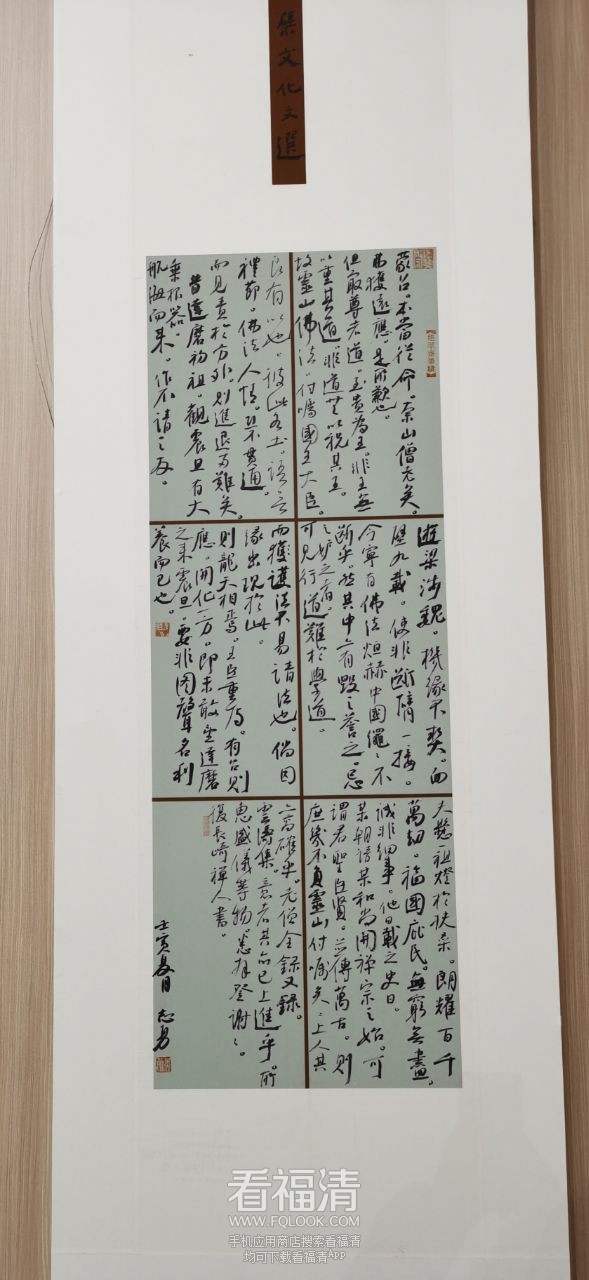 集文化文選
蒙召。本當從命。奈山僧老矣。
弗獲遠應。是所歉也。
但最尊者道。至貴為王。非王無
以重其道。非道無以祝其王。
故靈山佛法。付囑國王大臣。
良有以也。彼此各土。語言
禮節。佛法人情。恐不貫通。
而見責於方外。則進退兩難矣。
昔達磨初祖。觀震旦有大
乘根器。
航海而來。作不請之友。
遊梁涉魏。機緣不契。面
壁九載。使非斷臂一接。
今寧有佛法烜赫中國繩々不
斷乎。然其中亦有毀之譽之。忌
之妒之者。
可見行道難於學道。
而獲護法不易請法也。倘因
緣出現於此。
則龍天相焉。王臣重焉。有召則
應。開化一方。即未敢望達磨
之來震旦。要非圖聲名利
養而已也。
夫慧祖燈於扶桑。朗耀百千
萬劫。福國庇民。無窮無盡。
誠非細事。他日載之史曰。
某朝請某和尚開禪宗之始。可
謂君聖臣賢。芳傳萬古。則
庶幾不負靈山付囑矣。上人其
亦高確乎。老僧全錄又錄。
雲濤集。意者其亦已上進乎。所
惠盛儀等物。悉拜登。謝々。
復長崎禪人書。
壬寅夏月 志勇
看福清
WWW.FQLOOK.COM
手机应用商店搜索看福清
均可下载看福清APP